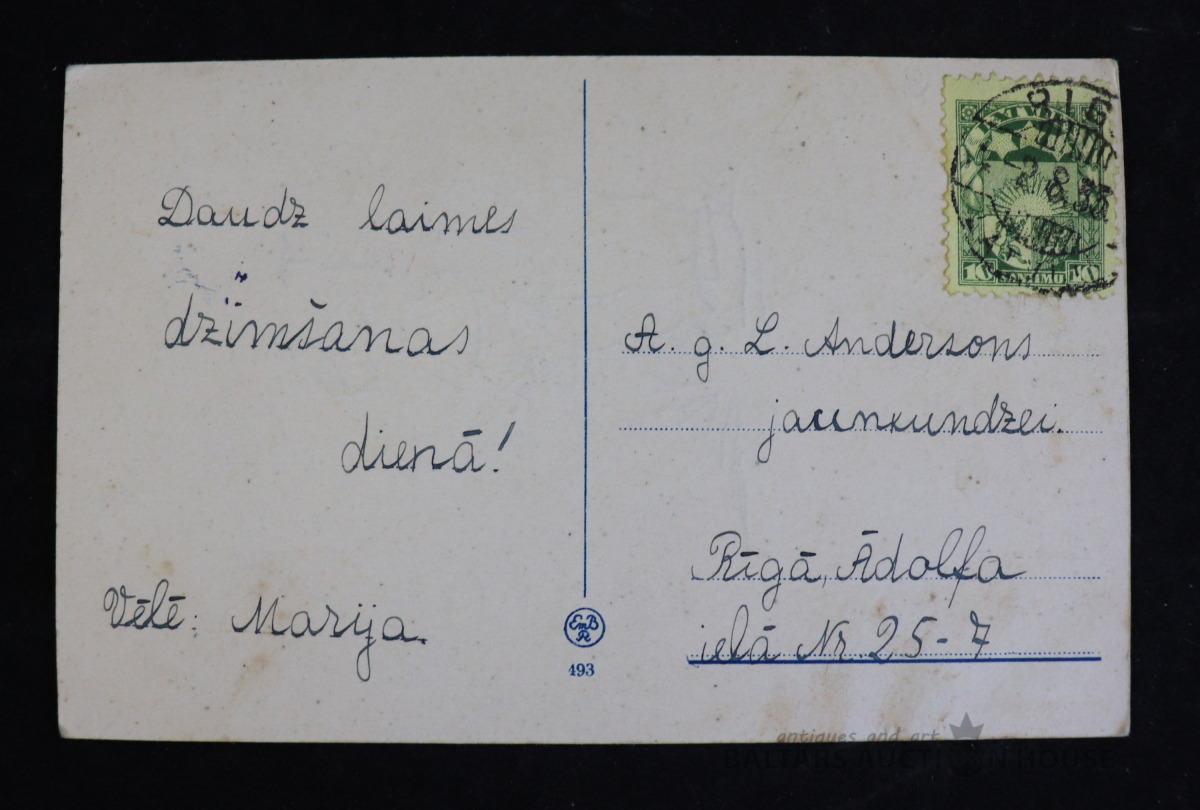 Daudz laimes
dzimšanas
dienā!
Vēlē: Marija.
EmB
R
493
LATVIJA
10 SANTIMU 10
-2.8.33.
A. g. L. Andersons
jaunkundzei.
Rīgā, Ādolfa
ielā Nr. 25-7
antiques and art
BALTARS AUCTION HOUSE